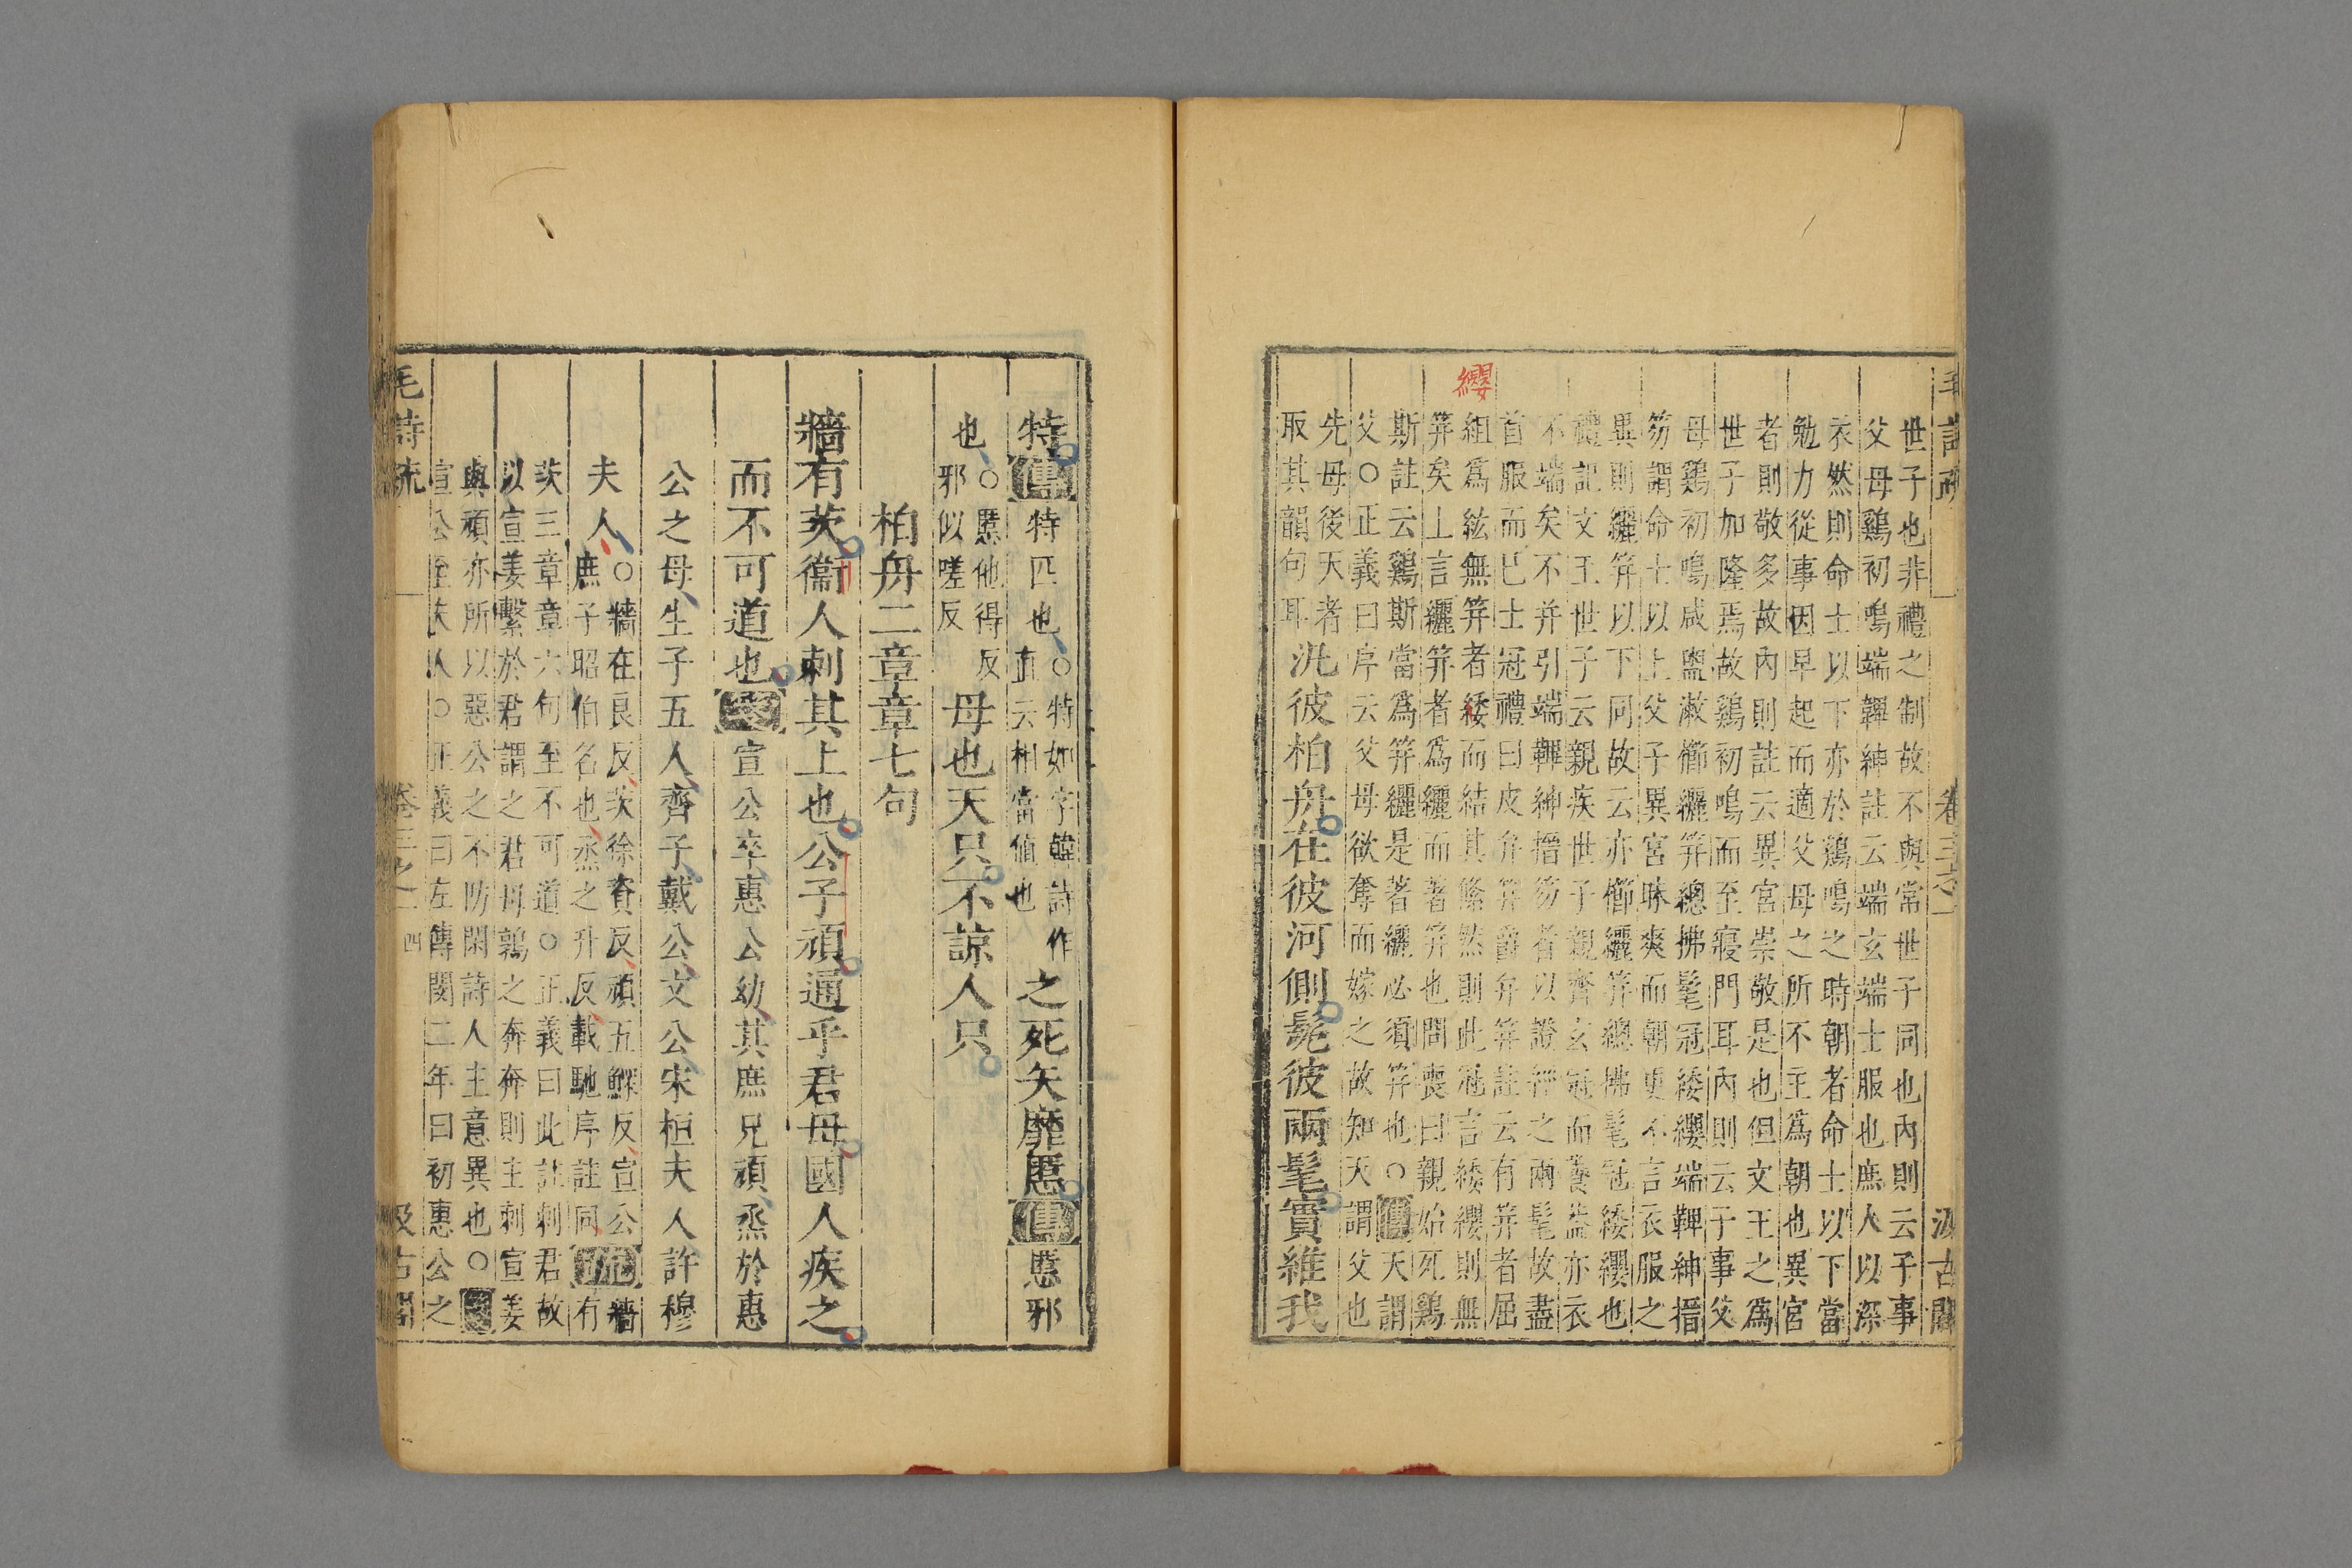 毛詩疏 卷三之一 汲古閣
世子也非禮之制故不與常世子同也內則云子事
父母鷄初鳴端韠紳註云端玄端士服也庶人以深
衣然則命士以下亦於鷄鳴之時朝者命士以下當
勉力從事因早起而適父母之所不主爲朝也異宮
者則敬多故內則註云異宮崇敬是也但文王之爲
世子加隆焉故鷄初鳴而至寢門耳內則云子事父
母鷄初鳴咸盥漱櫛纚笄總拂髦冠緌纓端韠紳搢
笏謂命士以上父子異宮昧爽而朝更不言衣服之
異則纚笄以下同故云亦櫛纚笄總拂髦冠緌纓也
禮記文王世子云親疾世子親齊玄冠而養蓋亦衣
不端矣不并引端韠紳搢笏者以證經之兩髦故盡
首服而已士冠禮曰皮弁笄爵弁笄註云有笄者屈
組爲紘無笄者緌而結其絛然則此冠言緌纓則無
笄矣上言纚笄者爲纚而著笄也問喪曰親始死鷄
斯註云鷄斯當爲笄纚是著纚必須笄也○傳天謂
父○正義曰序云父母欲奪而嫁之故知天謂父也
先母後天者
取其韻句耳
汎彼柏舟在彼河側髧彼兩髦實維我
纓
特傳特匹也○特如字韓詩作
直云相當値也
之死矢靡慝傳慝邪
也○慝他得反
邪似嗟反
母也天只不諒人只
柏舟二章章七句
牆有茨衞人刺其上也公子頑通乎君母國人疾之
而不可道也箋宣公卒惠公幼其庶兄頑烝於惠
公之母生子五人齊子戴公文公宋桓夫人許穆
夫人○牆在良反茨徐資反頑五鰥反宣公
庶子昭伯名也烝之升反載馳序註同疏牆有
茨三章章六句至不可道○正義曰此註刺君故
以宣姜繫於君謂之君母鶉之奔奔則主刺宣姜
與頑亦所以惡公之不防閑詩人主意異也○箋
宣公至夫人○正義曰左傳閔二年曰初惠公之
毛詩疏 卷三之一 四 汲古閣